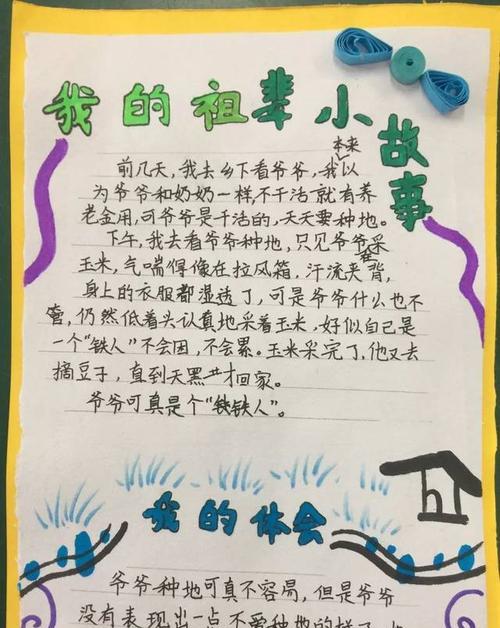 我的祖辈小故事
前几天，我去乡下看爷爷，我本来以
为爷爷和奶奶一样，不干活就有养
老金用，可爷爷是干活的，天天要种地。
下午，我去看爷爷种地，只见爷爷在采
玉米，气喘得像在拉风箱，汗流夹背，
身上的衣服都湿透了，可是爷爷什么也不
管，仍然低着头认真地采着玉米，好似自己是
一个“铁人”不会困，不会累。玉米采完了，他又去
摘豆子，直到天黑才回家。
爷爷可真是个“铁铁人”。
我的体会
爷爷种地可真不容易，但是爷爷
没有表现出一点不爱种地的样子